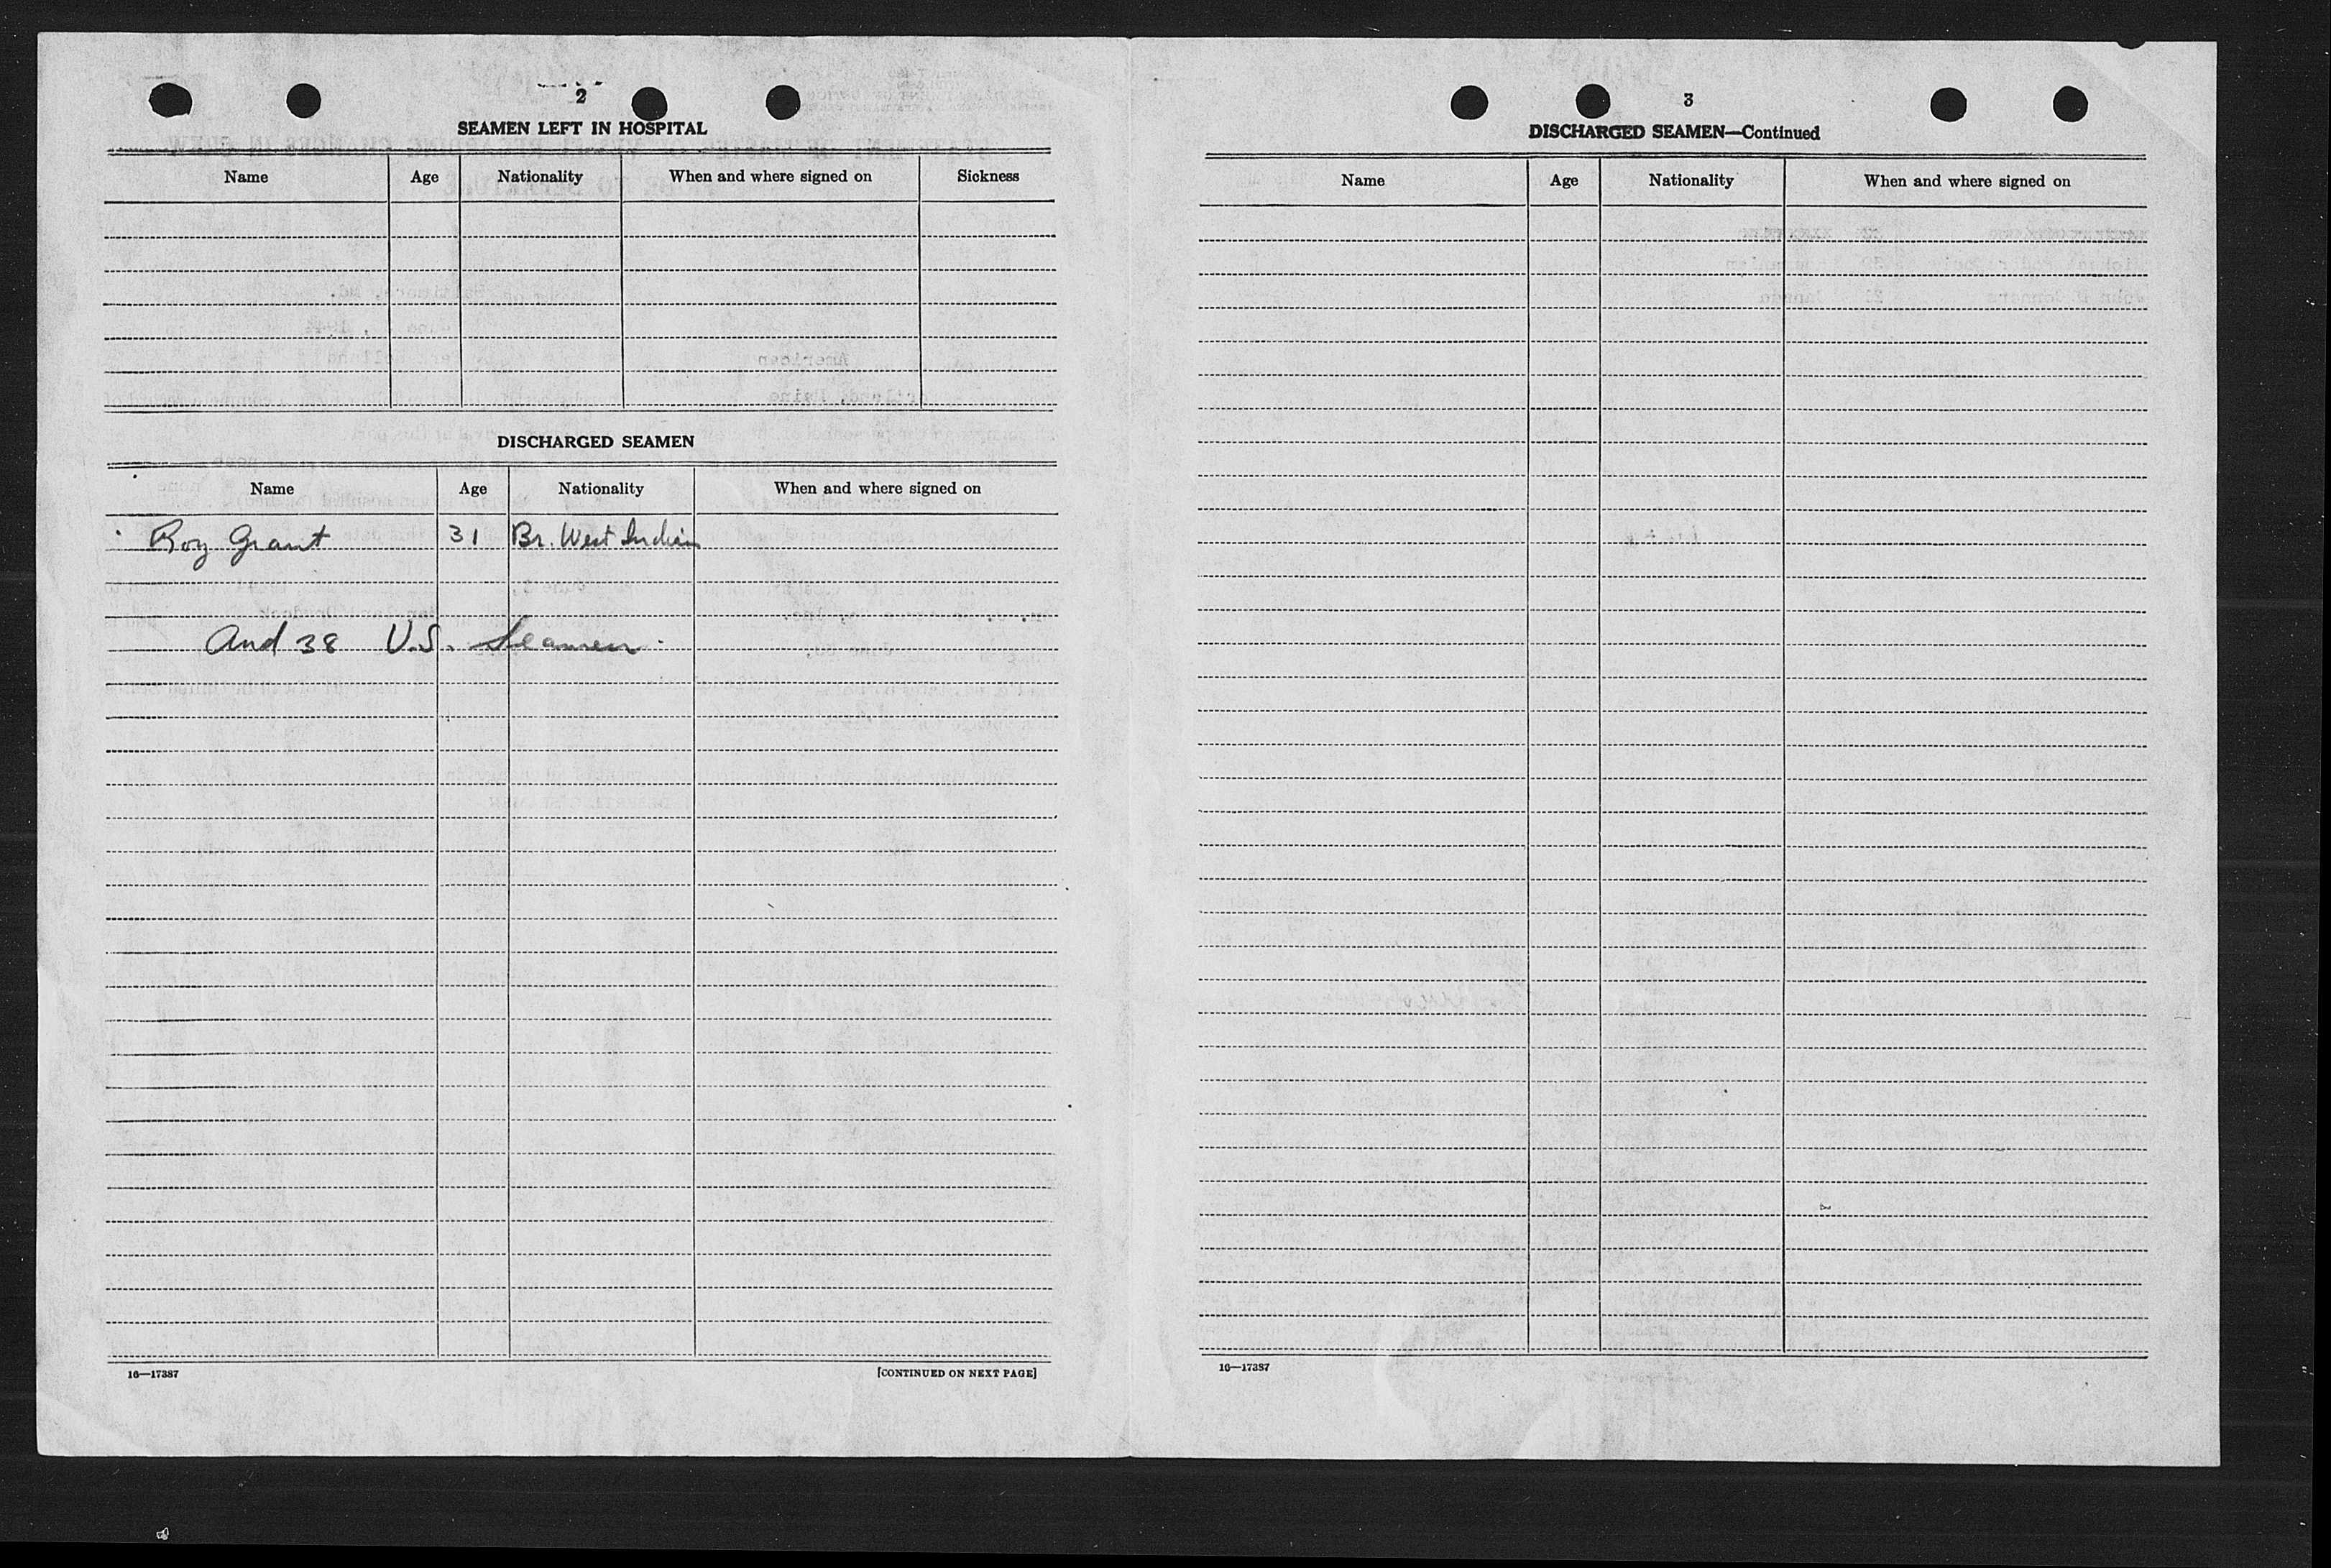 2
SEAMEN LEFT IN HOSPITAL
Name Age Nationality When and where signed on Sickness
DISCHARGED SEAMEN
Name Age Nationality When and where signed on
Roy Grant 31 Br. West Indian
And 38 U.S. Seamen.
16—17387 [CONTINUED ON NEXT PAGE]
3
DISCHARGED SEAMEN—Continued
Name Age Nationality When and where signed on
16—17387